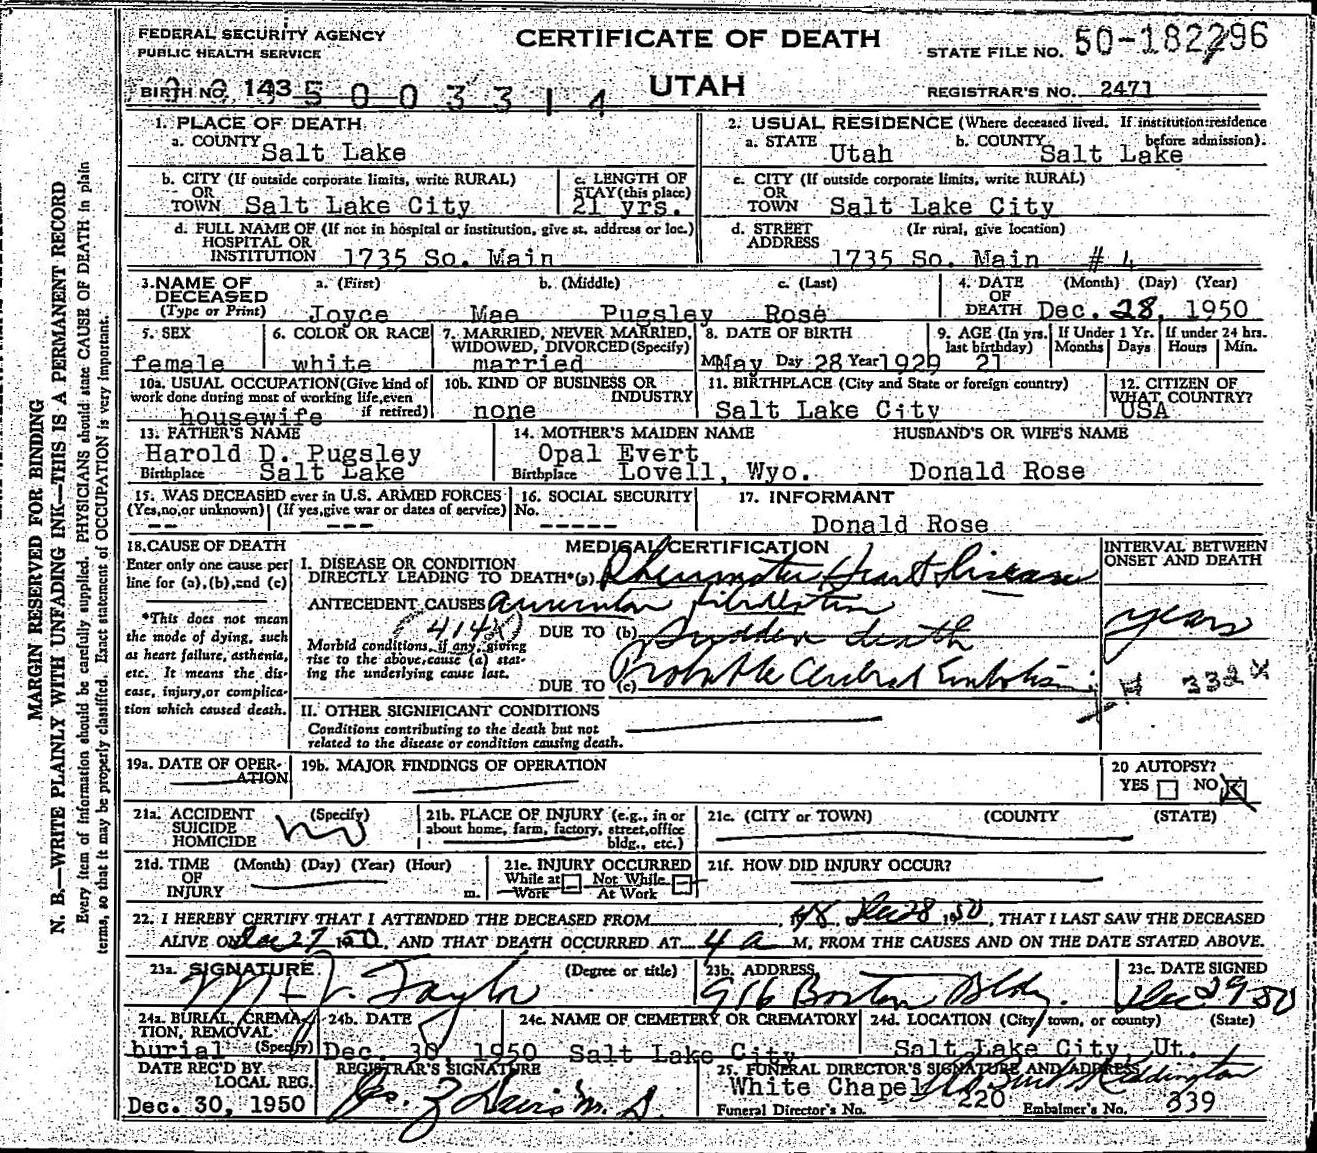 FEDERAL SECURITY AGENCY
PUBLIC HEALTH SERVICE
CERTIFICATE OF DEATH
STATE FILE NO. 50-182296
BIRTH NO. 143 5 0 0 3 3 1 4
UTAH
REGISTRAR'S NO. 2471
1. PLACE OF DEATH
a. COUNTY Salt Lake
2. USUAL RESIDENCE (Where deceased lived. If institution: residence before admission).
a. STATE Utah b. COUNTY Salt Lake
b. CITY (If outside corporate limits, write RURAL)
OR
TOWN Salt Lake City
c. LENGTH OF
STAY (this place)
21 yrs.
c. CITY (If outside corporate limits, write RURAL)
OR
TOWN Salt Lake City
d. FULL NAME OF (If not in hospital or institution, give st. address or loc.)
HOSPITAL OR
INSTITUTION 1735 So. Main
d. STREET (If rural, give location)
ADDRESS
1735 So. Main # 4
3. NAME OF
DECEASED
(Type or Print)
a. (First) b. (Middle) c. (Last)
Joyce Mae Pugsley Rose
4. DATE (Month) (Day) (Year)
OF
DEATH Dec. 28, 1950
5. SEX
female
6. COLOR OR RACE
white
7. MARRIED, NEVER MARRIED,
WIDOWED, DIVORCED (Specify)
married
8. DATE OF BIRTH
May Day 28 Year 1929
9. AGE (In yrs.
last birthday)
21
If Under 1 Yr.
Months Days
If under 24 hrs.
Hours Min.
10a. USUAL OCCUPATION (Give kind of
work done during most of working life, even
if retired)
housewife
10b. KIND OF BUSINESS OR
INDUSTRY
none
11. BIRTHPLACE (City and State or foreign country)
Salt Lake City
12. CITIZEN OF
WHAT COUNTRY?
USA
13. FATHER'S NAME
Harold D. Pugsley
Birthplace Salt Lake
14. MOTHER'S MAIDEN NAME
Opal Evert
Birthplace Lovell, Wyo.
HUSBAND'S OR WIFE'S NAME
Donald Rose
15. WAS DECEASED ever in U.S. ARMED FORCES
(Yes, no, or unknown) (If yes, give war or dates of service)
-- ---
16. SOCIAL SECURITY
No.
-----
17. INFORMANT
Donald Rose
18. CAUSE OF DEATH
Enter only one cause per
line for (a), (b), and (c)
*This does not mean
the mode of dying, such
as heart failure, asthenia,
etc. It means the dis-
ease, injury, or complica-
tion which caused death.
MEDICAL CERTIFICATION
I. DISEASE OR CONDITION
DIRECTLY LEADING TO DEATH*(a) Rheumatic Heart Disease
ANTECEDENT CAUSES
(414X)
Morbid conditions, if any, giving
rise to the above cause (a) stat-
ing the underlying cause last.
DUE TO (b) Sudden death
DUE TO (c) Probable Cerebral Embolism
INTERVAL BETWEEN
ONSET AND DEATH
years
332 X
II. OTHER SIGNIFICANT CONDITIONS
Conditions contributing to the death but not
related to the disease or condition causing death.
19a. DATE OF OPER-
ATION
19b. MAJOR FINDINGS OF OPERATION
20 AUTOPSY?
YES NO
21a. ACCIDENT (Specify)
SUICIDE
HOMICIDE
no
21b. PLACE OF INJURY (e.g., in or
about home, farm, factory, street, office
bldg., etc.)
21c. (CITY or TOWN) (COUNTY) (STATE)
21d. TIME (Month) (Day) (Year) (Hour)
OF
INJURY m.
21e. INJURY OCCURRED
While at Not While
Work At Work
21f. HOW DID INJURY OCCUR?
22. I HEREBY CERTIFY THAT I ATTENDED THE DECEASED FROM 48 Dec 28 1950, THAT I LAST SAW THE DECEASED
ALIVE ON Dec 27 1950, AND THAT DEATH OCCURRED AT 4 a M, FROM THE CAUSES AND ON THE DATE STATED ABOVE.
23a. SIGNATURE (Degree or title)
Taylor
23b. ADDRESS
916 Boston Bldg.
23c. DATE SIGNED
Dec 29 50
24a. BURIAL, CREMA-
TION, REMOVAL
(Specify)
burial
24b. DATE
Dec. 30, 1950
24c. NAME OF CEMETERY OR CREMATORY
Salt Lake City
24d. LOCATION (City, town, or county) (State)
Salt Lake City, Ut.
DATE REC'D BY
LOCAL REG.
Dec. 30, 1950
REGISTRAR'S SIGNATURE
Jos. Z Davis M. D.
25. FUNERAL DIRECTOR'S SIGNATURE AND ADDRESS
White Chapel
Funeral Director's No. 220 Embalmer's No. 339
MARGIN RESERVED FOR BINDING
N. B.—WRITE PLAINLY WITH UNFADING INK—THIS IS A PERMANENT RECORD
Every item of information should be carefully supplied. PHYSICIANS should state CAUSE OF DEATH in plain
terms, so that it may be properly classified. Exact statement of OCCUPATION is very important.